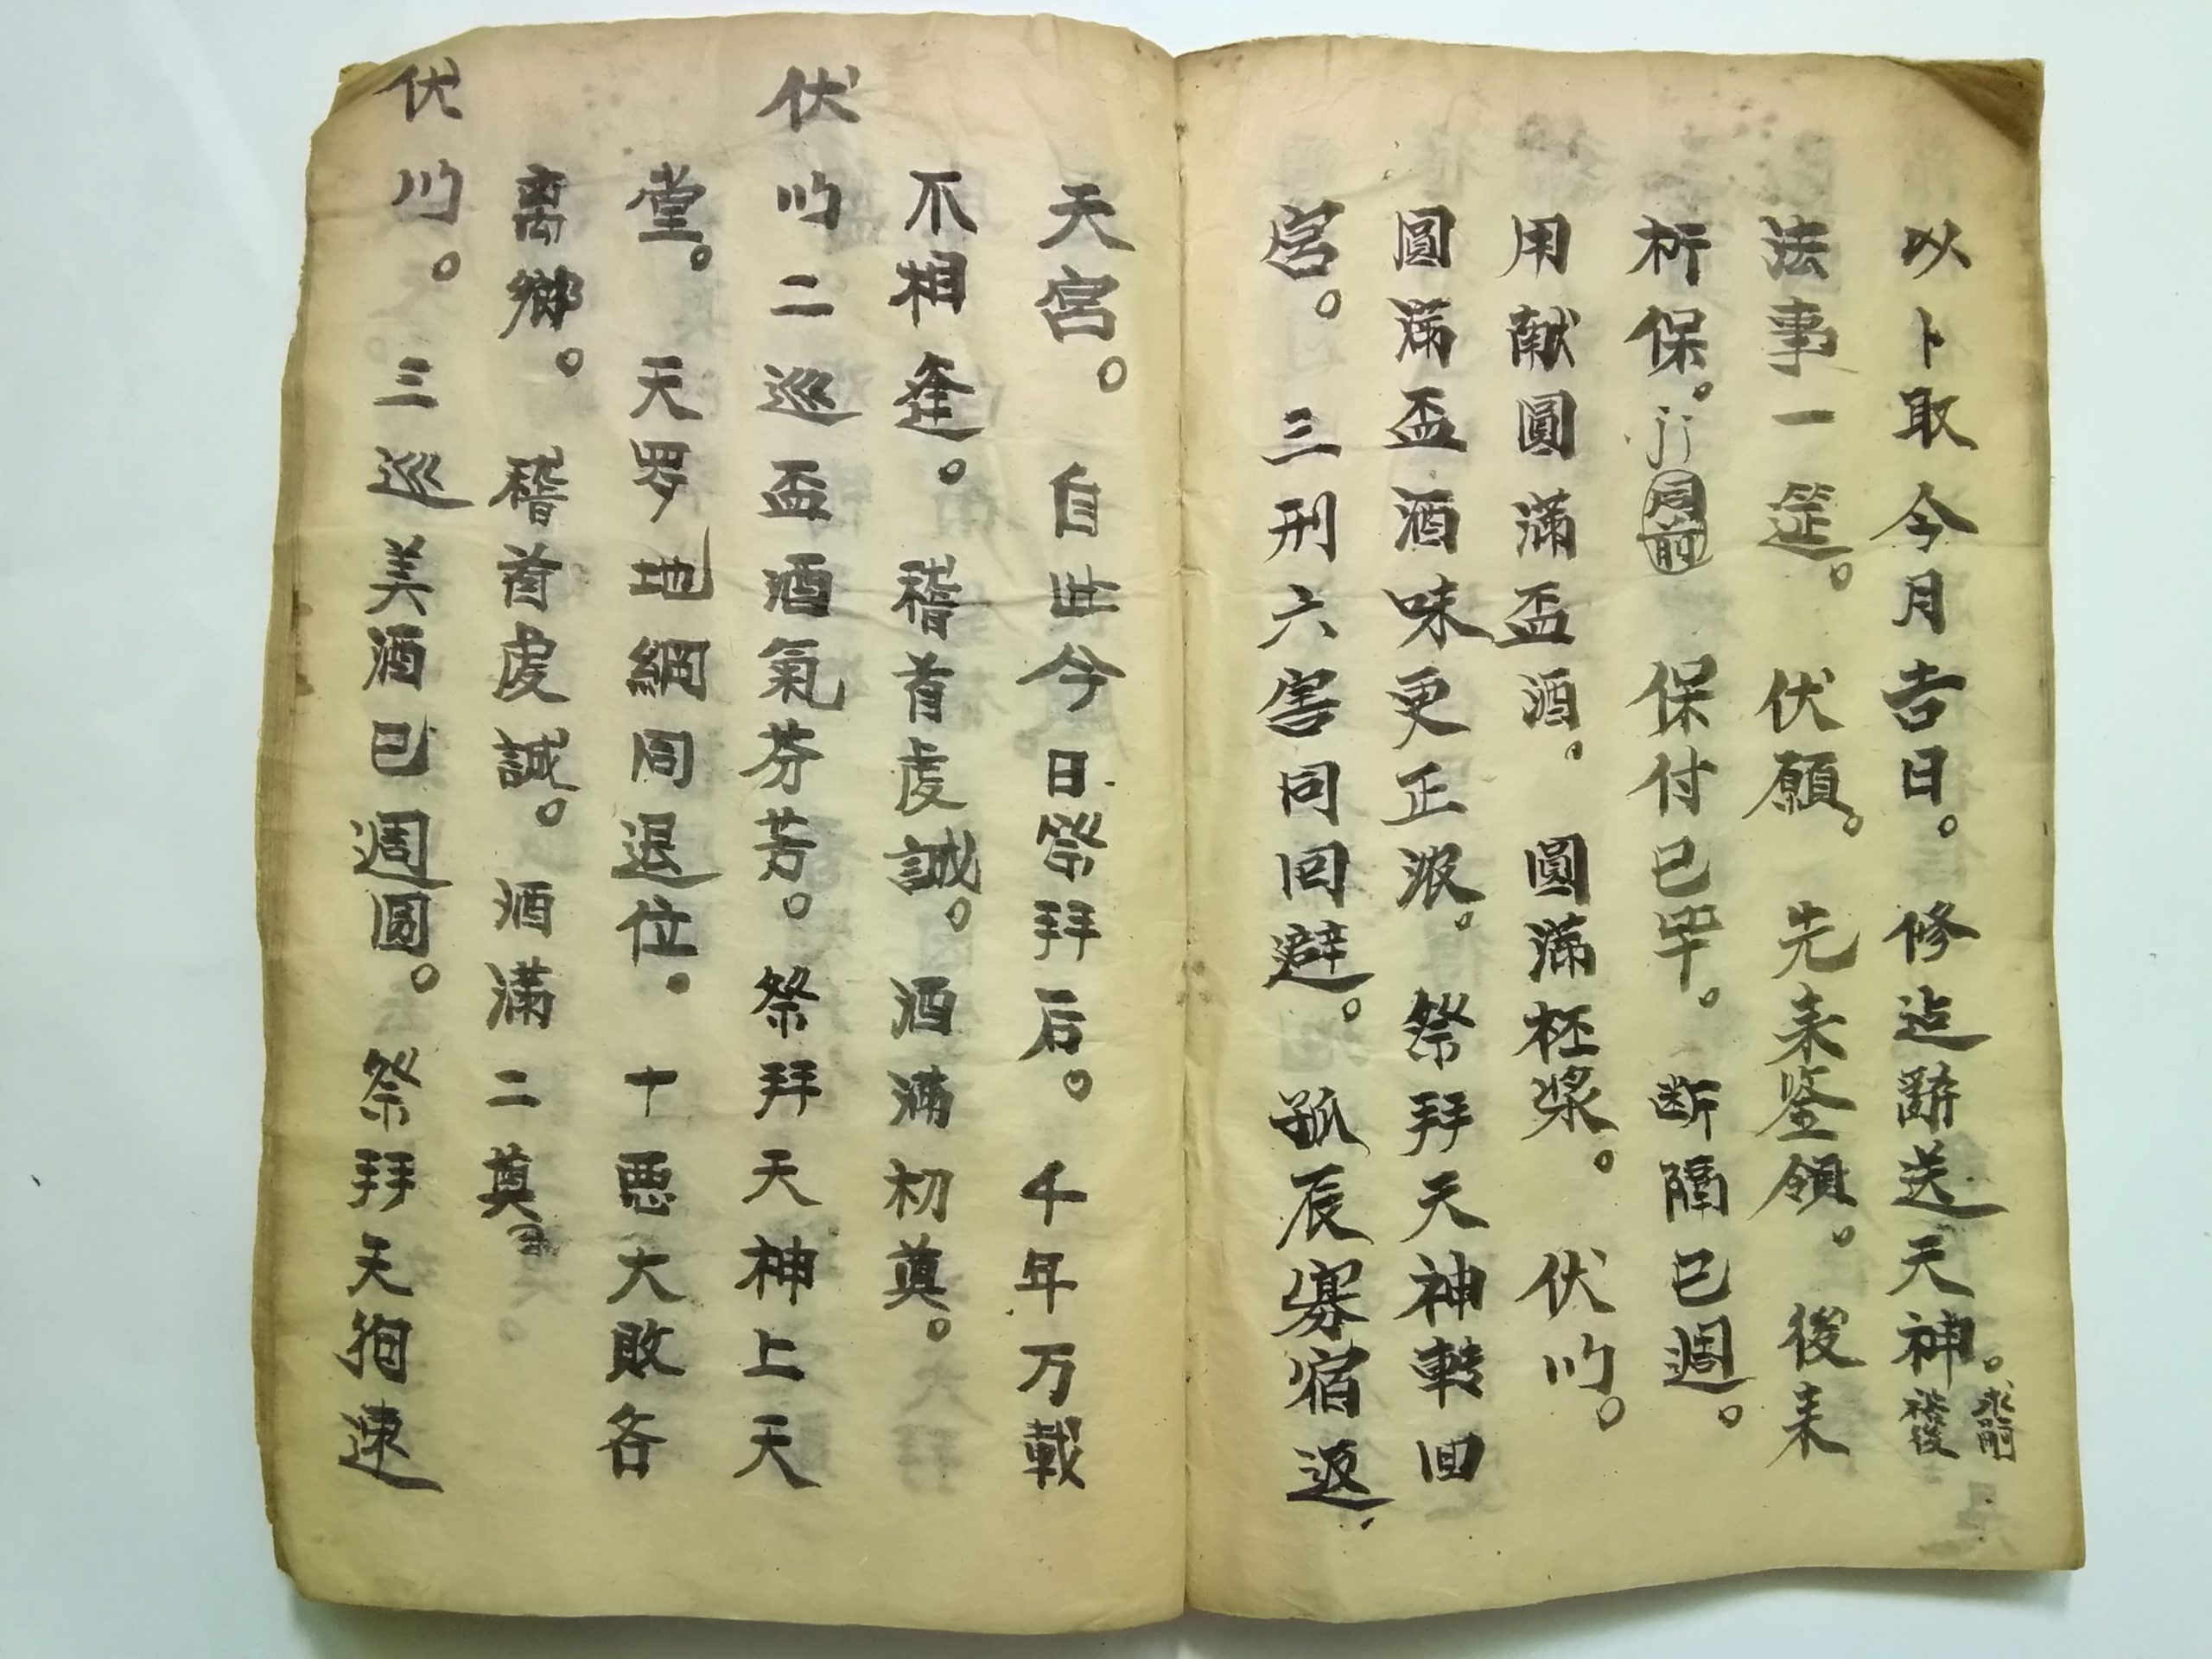 以卜取今月吉日。修迠辭送天神。
法事一筵。伏願。先来鉴領。後来
析保。同前 保付已毕。断隔已週。
用献圓滿盃酒。圓滿柸漿。伏以。
圓滿盃酒味更正浓。祭拜天神轉回
宮。三刑六害同回避。孤辰寡宿返
天宮。自此今日祭拜后。千年万載
不相逢。稽首虔誠。酒滿初奠。
伏以二巡盃酒氣芬芳。祭拜天神上天
堂。天罗地網同退位。十悪大敗各
离鄉。稽首虔誠。酒滿二奠。
伏以。三巡美酒已週圓。祭拜天狗速